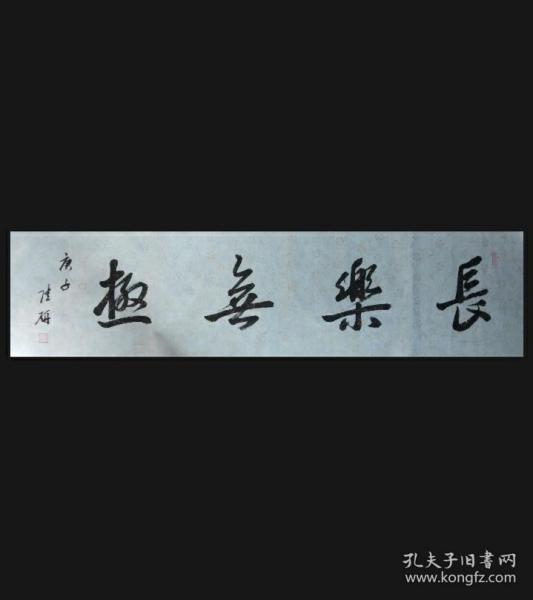 長樂無極
庚子
孔夫子旧書网
www.kongfz.com